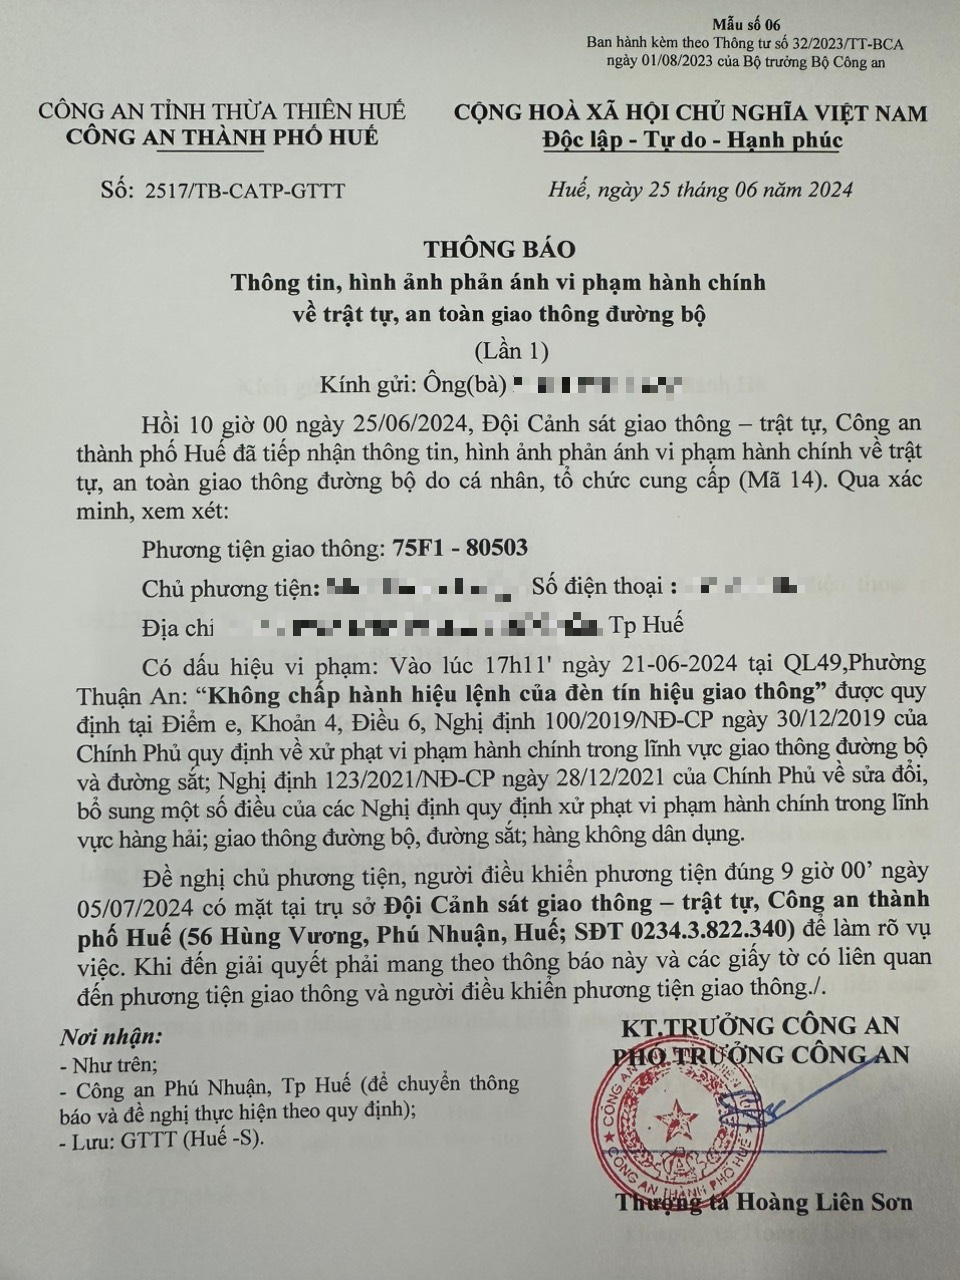 Mẫu số 06
Ban hành kèm theo Thông tư số 32/2023/TT-BCA
ngày 01/08/2023 của Bộ trưởng Bộ Công an
CÔNG AN TỈNH THỪA THIÊN HUẾ
CÔNG AN THÀNH PHỐ HUẾ
CỘNG HOÀ XÃ HỘI CHỦ NGHĨA VIỆT NAM
Độc lập - Tự do - Hạnh phúc
Số: 2517/TB-CATP-GTTT
Huế, ngày 25 tháng 06 năm 2024
THÔNG BÁO
Thông tin, hình ảnh phản ánh vi phạm hành chính
về trật tự, an toàn giao thông đường bộ
(Lần 1)
Kính gửi: Ông(bà)
Hồi 10 giờ 00 ngày 25/06/2024, Đội Cảnh sát giao thông – trật tự, Công an
thành phố Huế đã tiếp nhận thông tin, hình ảnh phản ánh vi phạm hành chính về trật
tự, an toàn giao thông đường bộ do cá nhân, tổ chức cung cấp (Mã 14). Qua xác
minh, xem xét:
Phương tiện giao thông: 75F1 - 80503
Chủ phương tiện: Số điện thoại :
Địa chỉ Tp Huế
Có dấu hiệu vi phạm: Vào lúc 17h11' ngày 21-06-2024 tại QL49,Phường
Thuận An: “Không chấp hành hiệu lệnh của đèn tín hiệu giao thông” được quy
định tại Điểm e, Khoản 4, Điều 6, Nghị định 100/2019/NĐ-CP ngày 30/12/2019 của
Chính Phủ quy định về xử phạt vi phạm hành chính trong lĩnh vực giao thông đường bộ
và đường sắt; Nghị định 123/2021/NĐ-CP ngày 28/12/2021 của Chính Phủ về sửa đổi,
bổ sung một số điều của các Nghị định quy định xử phạt vi phạm hành chính trong lĩnh
vực hàng hải; giao thông đường bộ, đường sắt; hàng không dân dụng.
Đề nghị chủ phương tiện, người điều khiển phương tiện đúng 9 giờ 00’ ngày
05/07/2024 có mặt tại trụ sở Đội Cảnh sát giao thông – trật tự, Công an thành
phố Huế (56 Hùng Vương, Phú Nhuận, Huế; SĐT 0234.3.822.340) để làm rõ vụ
việc. Khi đến giải quyết phải mang theo thông báo này và các giấy tờ có liên quan
đến phương tiện giao thông và người điều khiển phương tiện giao thông./.
Nơi nhận:
- Như trên;
- Công an Phú Nhuận, Tp Huế (để chuyển thông
báo và đề nghị thực hiện theo quy định);
- Lưu: GTTT (Huế -S).
KT.TRƯỞNG CÔNG AN
PHÓ.TRƯỞNG CÔNG AN
CÔNG AN THÀNH PHỐ HUẾ
Thượng tá Hoàng Liên Sơn